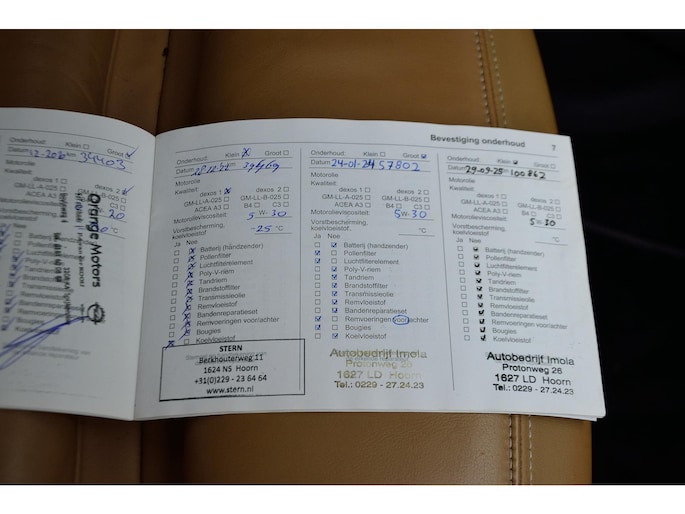 Bevestiging onderhoud 7
Onderhoud: Klein Groot
34403
Kwaliteit:
dexos 1 dexos 2
GM-LL-A-025 GM-LL-B-025
ACEA A3 B4 C3
Orange Motors
Onderhoud: Klein Groot
Datum
Motorolie
Kwaliteit:
dexos 1 dexos 2
GM-LL-A-025 GM-LL-B-025
ACEA A3 B4 C3
Motorolieviscositeit: 5 W- 30
Vorstbescherming, koelvloeistof -25 °C
Ja Nee
Batterij (handzender)
Pollenfilter
Luchtfilterelement
Poly-V-riem
Tandriem
Brandstoffilter
Transmissieolie
Remvloeistof
Bandenreparatieset
Remvoeringen voor/achter
Bougies
Koelvloeistof
STERN
Berkhouterweg 11
1624 NS Hoorn
+31(0)229 - 23 64 64
www.stern.nl
Onderhoud: Klein Groot
Datum 24-01-24 57802
Motorolie
Kwaliteit:
dexos 1 dexos 2
GM-LL-A-025 GM-LL-B-025
ACEA A3 B4 C3
Motorolieviscositeit: 5 W- 30
Vorstbescherming, koelvloeistof °C
Ja Nee
Batterij (handzender)
Pollenfilter
Luchtfilterelement
Poly-V-riem
Tandriem
Brandstoffilter
Transmissieolie
Remvloeistof
Bandenreparatieset
Remvoeringen voor/achter
Bougies
Koelvloeistof
Autobedrijf Imola
Protonweg 26
1627 LD Hoorn
Tel.: 0229 - 27.24.23
Onderhoud: Klein Groot
Datum 29-09-25 km 100862
Motorolie
Kwaliteit:
dexos 1 dexos 2
GM-LL-A-025 GM-LL-B-025
ACEA A3 B4 C3
Motorolieviscositeit:
5 W- 30
Vorstbescherming, koelvloeistof °C
Ja Nee
Batterij (handzender)
Pollenfilter
Luchtfilterelement
Poly-V-riem
Tandriem
Brandstoffilter
Transmissieolie
Remvloeistof
Bandenreparatieset
Remvoeringen voor/achter
Bougies
Koelvloeistof
Autobedrijf Imola
Protonweg 26
1627 LD Hoorn
Tel.: 0229 - 27.24.23